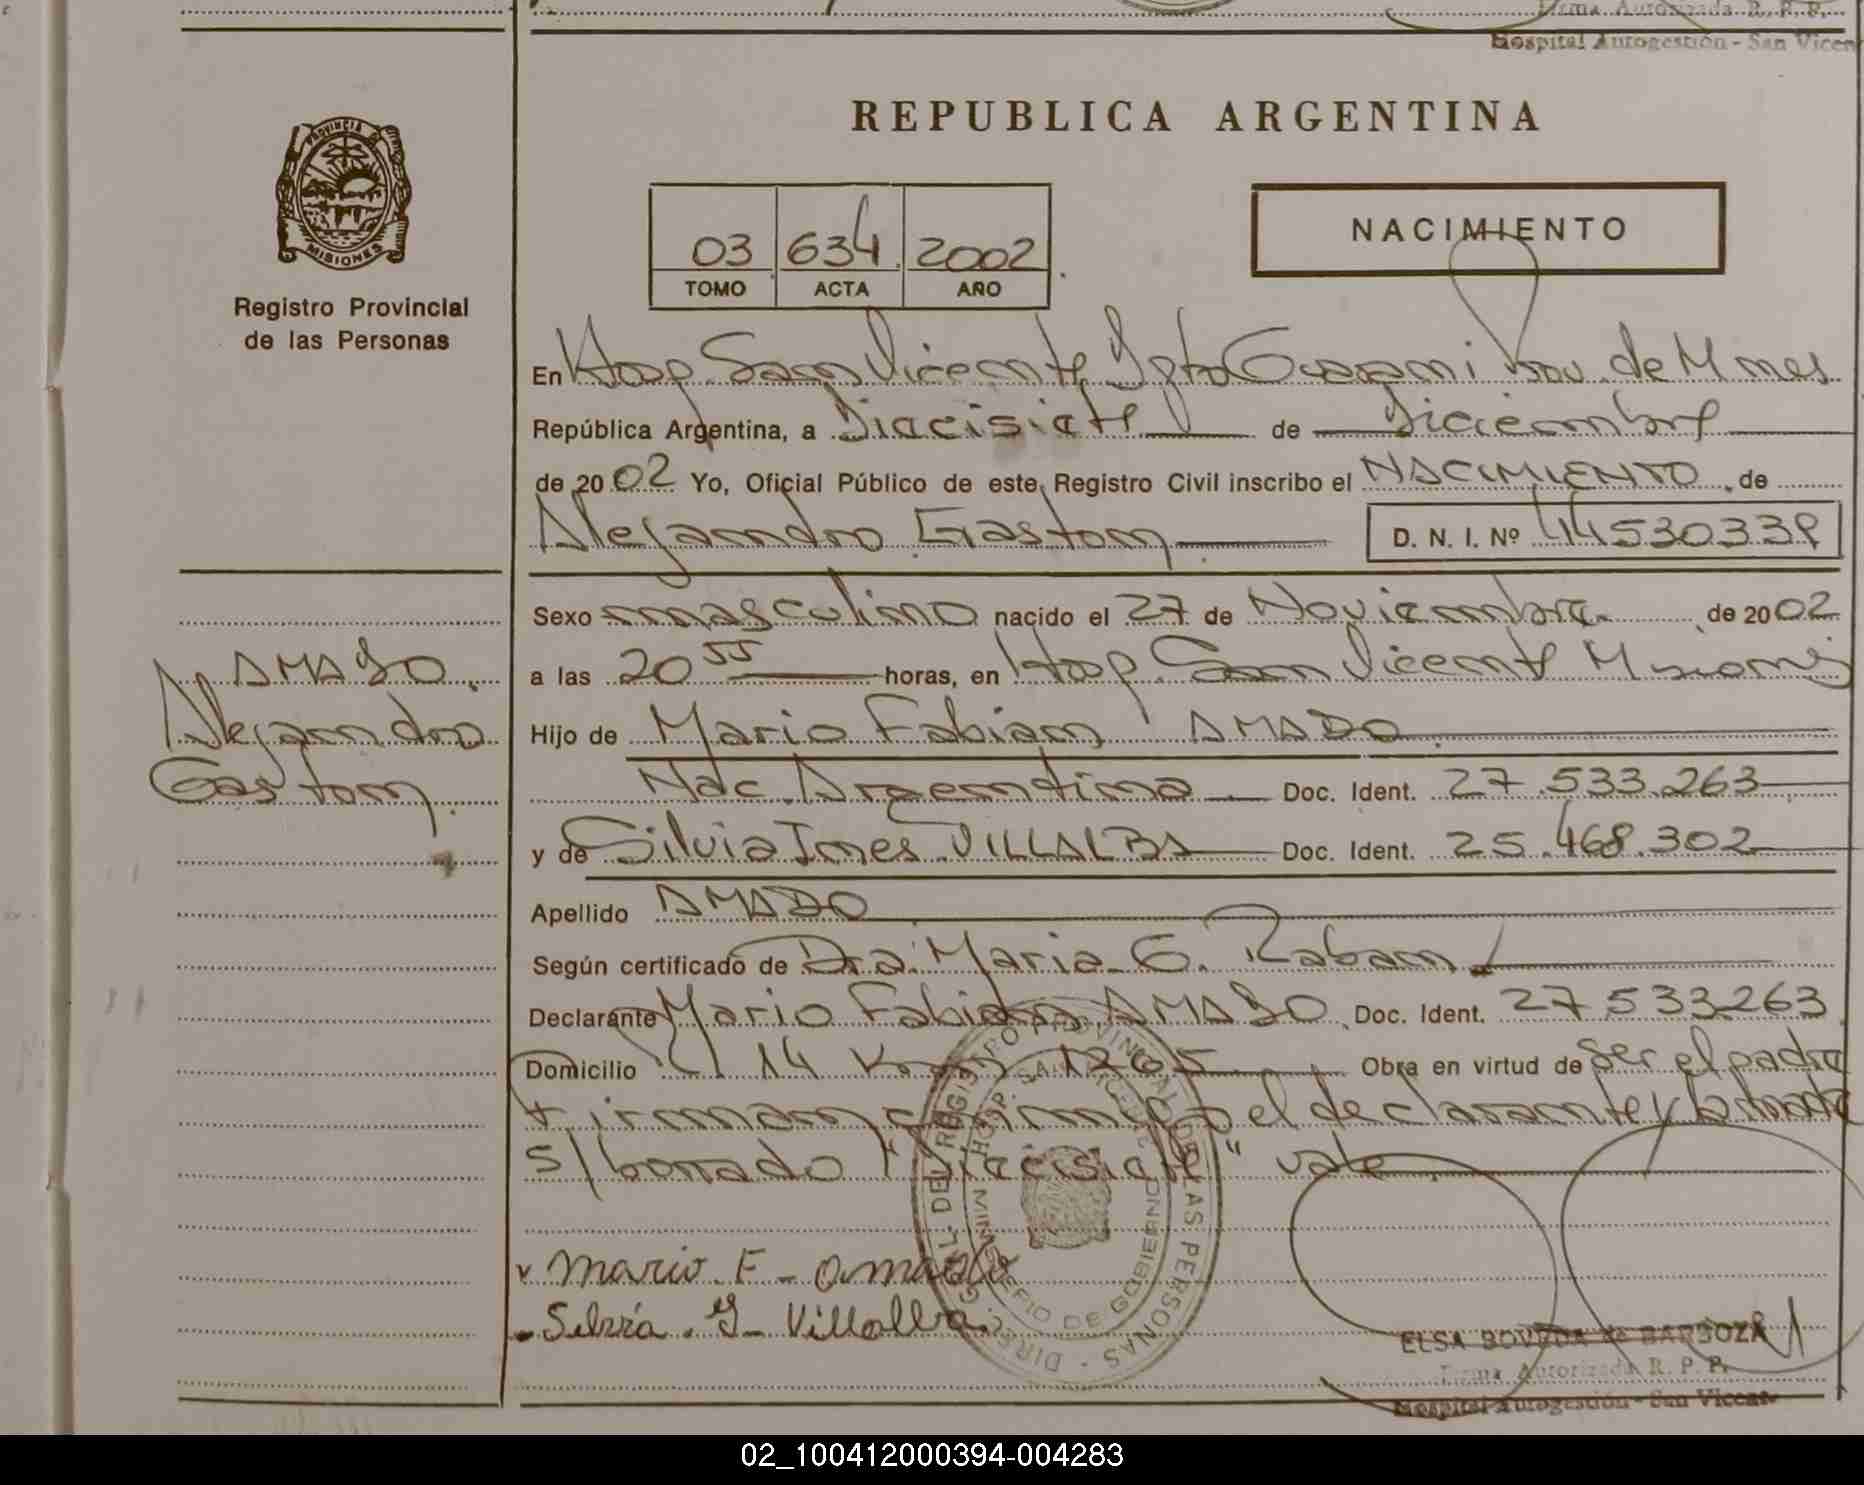 Firma Autorizada R. P. P.
Hospital Autogestión - San Vicen
REPUBLICA ARGENTINA
PROVINCIA DE
MISIONES
Registro Provincial
de las Personas
03 634 2002
TOMO ACTA AÑO
NACIMIENTO
En Hosp. San Vicente Dpto Guarani Prov. de Mnes
República Argentina, a Diecisiete de Diciembre
de 2002 Yo, Oficial Público de este Registro Civil inscribo el NACIMIENTO de
Alejandro Gaston D. N. I. Nº
Sexo masculino nacido el 27 de Noviembre de 2002
a las 20 55 horas, en Hosp. San Vicente Misiones
AMADO
Alejandro
Gaston.
Hijo de Mario Fabian AMADO
Nac. Argentina Doc. Ident. 27.533.263
y de Silvia Ines VILLALBA Doc. Ident. 25.468.302
Apellido AMADO
Según certificado de Dra. Maria G. Raban
Declarante Mario Fabian AMADO Doc. Ident. 27.533.263
Domicilio 14 Obra en virtud de ser el padre
el declarante y la madre
s/borrado "Diecisiete" vale
Mario. F - Amado
Silvia. Y- Villalba.
DIREC. GENERAL DEL REGISTRO PROVINCIAL DE LAS PERSONAS
MINISTERIO DE GOBIERNO HOSP. SAN VICENTE
ELSA BOVEDA de BARBOZA
Firma Autorizada R. P. P.
Hospital Autogestión - San Vicente
02_100412000394-004283